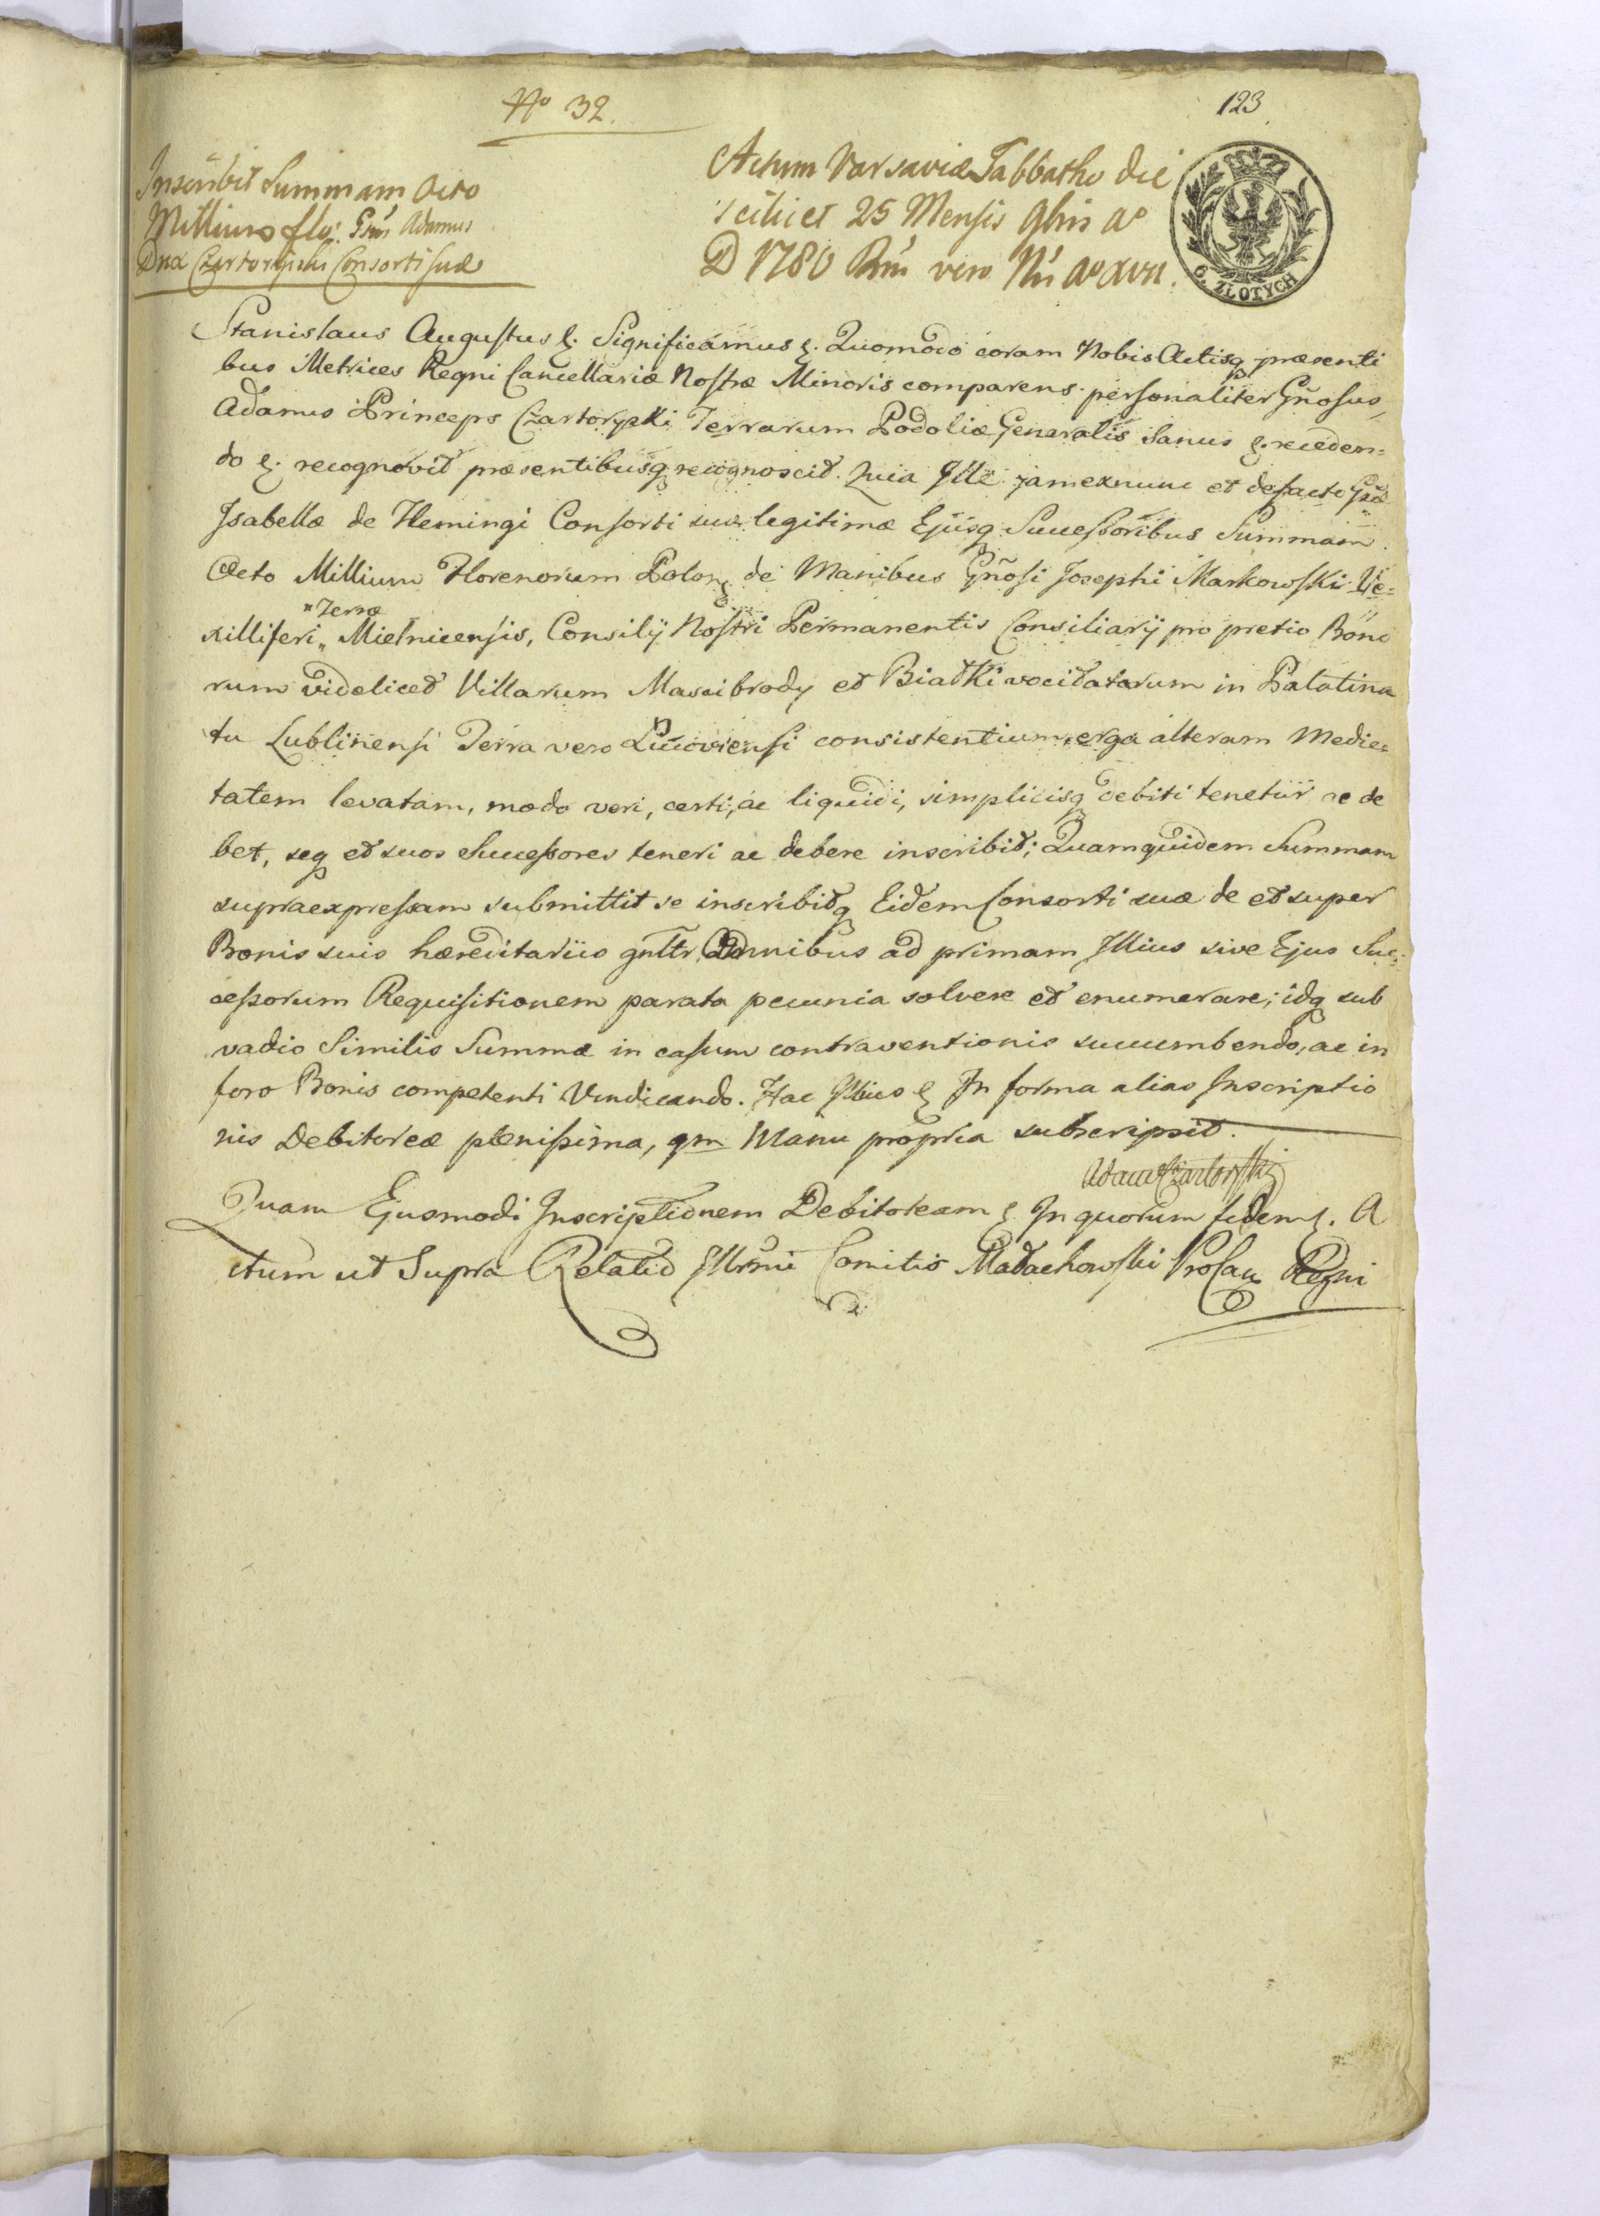 No 32.
123
Inscribit Summam Octo
Millium flo: Gnus Adamus
Dux Czartoryski Consorti suæ
Actum Varsaviæ Sabbatho die
scilicet 25 Mensis 9bris ao
D 1780 Rni vero Nri ao XVII.
6. ZŁOTYCH
Stanislaus Augustus &. Significamus &. Quomodo coram Nobis Actisq præsenti
bus Metrices Regni Cancellariæ Nostræ Minoris comparens personaliter Gnosus,
Adamus Princeps Czartoryski Terrarum Podoliæ Generalis sanus &. receden=
do &. recognovit præsentibusq recognoscit. Quia Ille jam exnunc et defacto Gsæ
Isabellæ de Flemingi Consorti suæ legitimæ Ejusq Successoribus Summam
Octo Millium Florenorum Polon, de Manibus Gnosi Josephi Markowski Ve=
"Terræ
xilliferi " Mielnicensis, Consilij Nostri Permanentis Consiliarij pro pretio Bono
rum videlicet Villarum Mascibrody et Białki vocitatarum in Palatina
tu Lublinensi Terra vero Lucoviensi consistentium, erga alteram Medie=
tatem levatam, modo veri, certi, ac liquidi, simplicisq debiti tenetur ac de
bet, seq et suos Successores teneri ac debere inscribit; Quamquidem Summam
supraexpressam submittit se inscribitq Eidem Consorti suæ de et super
Bonis suis hæreditariis gnltr Omnibus ad primam Illius sive Ejus Suc=
cessorum Requisitionem parata pecunia solvere et enumerare; idq sub
vadio Similis Summæ in casum contraventionis succumbendo, ac in
foro Bonis competenti Vindicando. Hac Illius & In forma alias Inscriptio
nis Debitoreæ plenissima, qm Manu propria subscripsit.
Adam Czartoryski
Quam Ejusmodi Inscriptionem Debitoream & In quorum fidem &. A
ctum ut Supra Relatio Illrmi Comitis Małachowski ProCan Regni